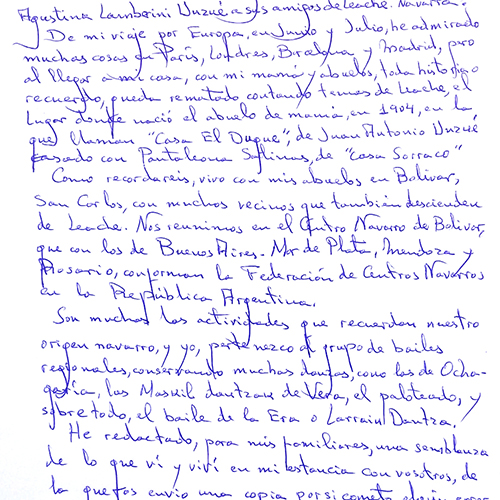 Agustina Lamberini Uzué a sus amigos de Leache. Navarra.
De mi viaje por Europa, en Junio y Julio, he admirado
muchas cosas en París, Londres, Barcelona y Madrid, pero
al llegar a mi casa, con mi mamá y abuelos, toda historia o
recuerdo, queda rematado contando temas de Leache, el
lugar donde nació el abuelo de mamá, en 1904, en la
que llaman "Casa El Duque", de Juan Antonio Uzué
casado con Pantaleona Salinas, de "Casa Sorraco"
Como recordareis, vivo con mis abuelos en Bolivar,
San Carlos, con muchos vecinos que también descienden
de Leache. Nos reunimos en el Centro Navarro de Bolivar,
que con los de Buenos Aires - Mar de Plata, Mendoza y
Rosario, conforman la Federación de Centros Navarros
en la República Argentina.
Son muchas las actividades que recuerdan nuestro
origen navarro, y yo, pertenezco al grupo de bailes
regionales, conservando muchas danzas, como las de Ocha-
gavía, las Maskil dantzak de Vera, el paloteado, y
sobre todo, el baile de la Era o Larrain Dantza.
He redactado, para mis familiares, una semblanza
de lo que ví y viví en mi estancia con vosotros, de
la que os envio una copia por si cometo algún error